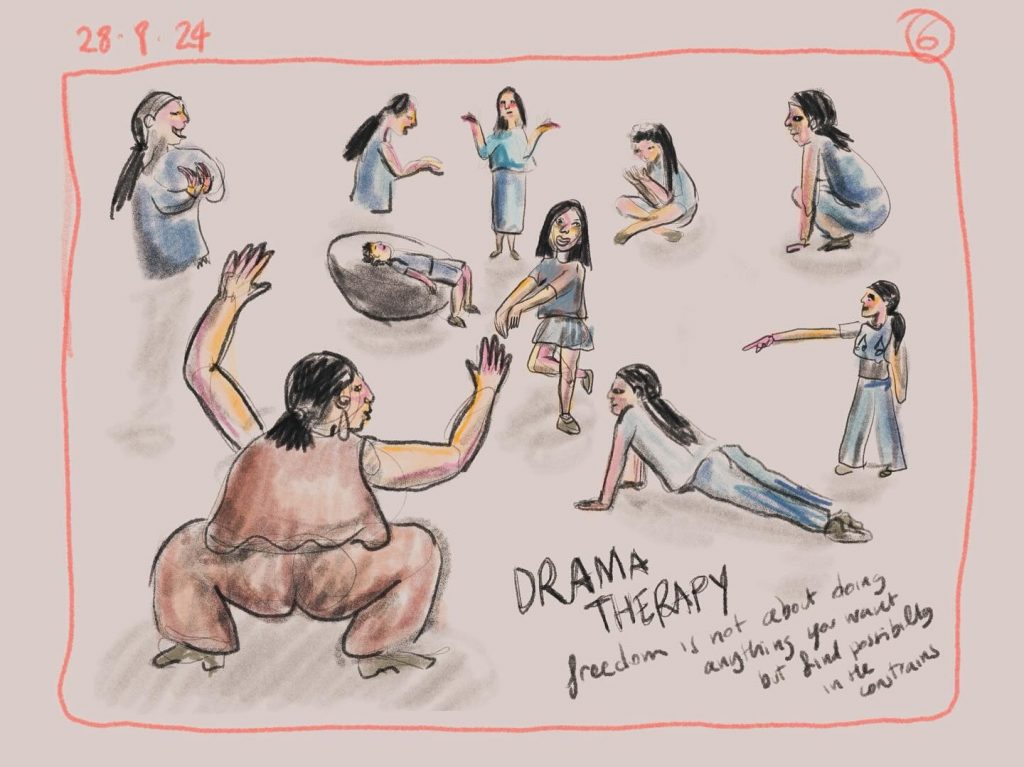 28·9·24
6
DRAMA
THERAPY
freedom is not about doing
anything you want
but find possibility
in the
constrains